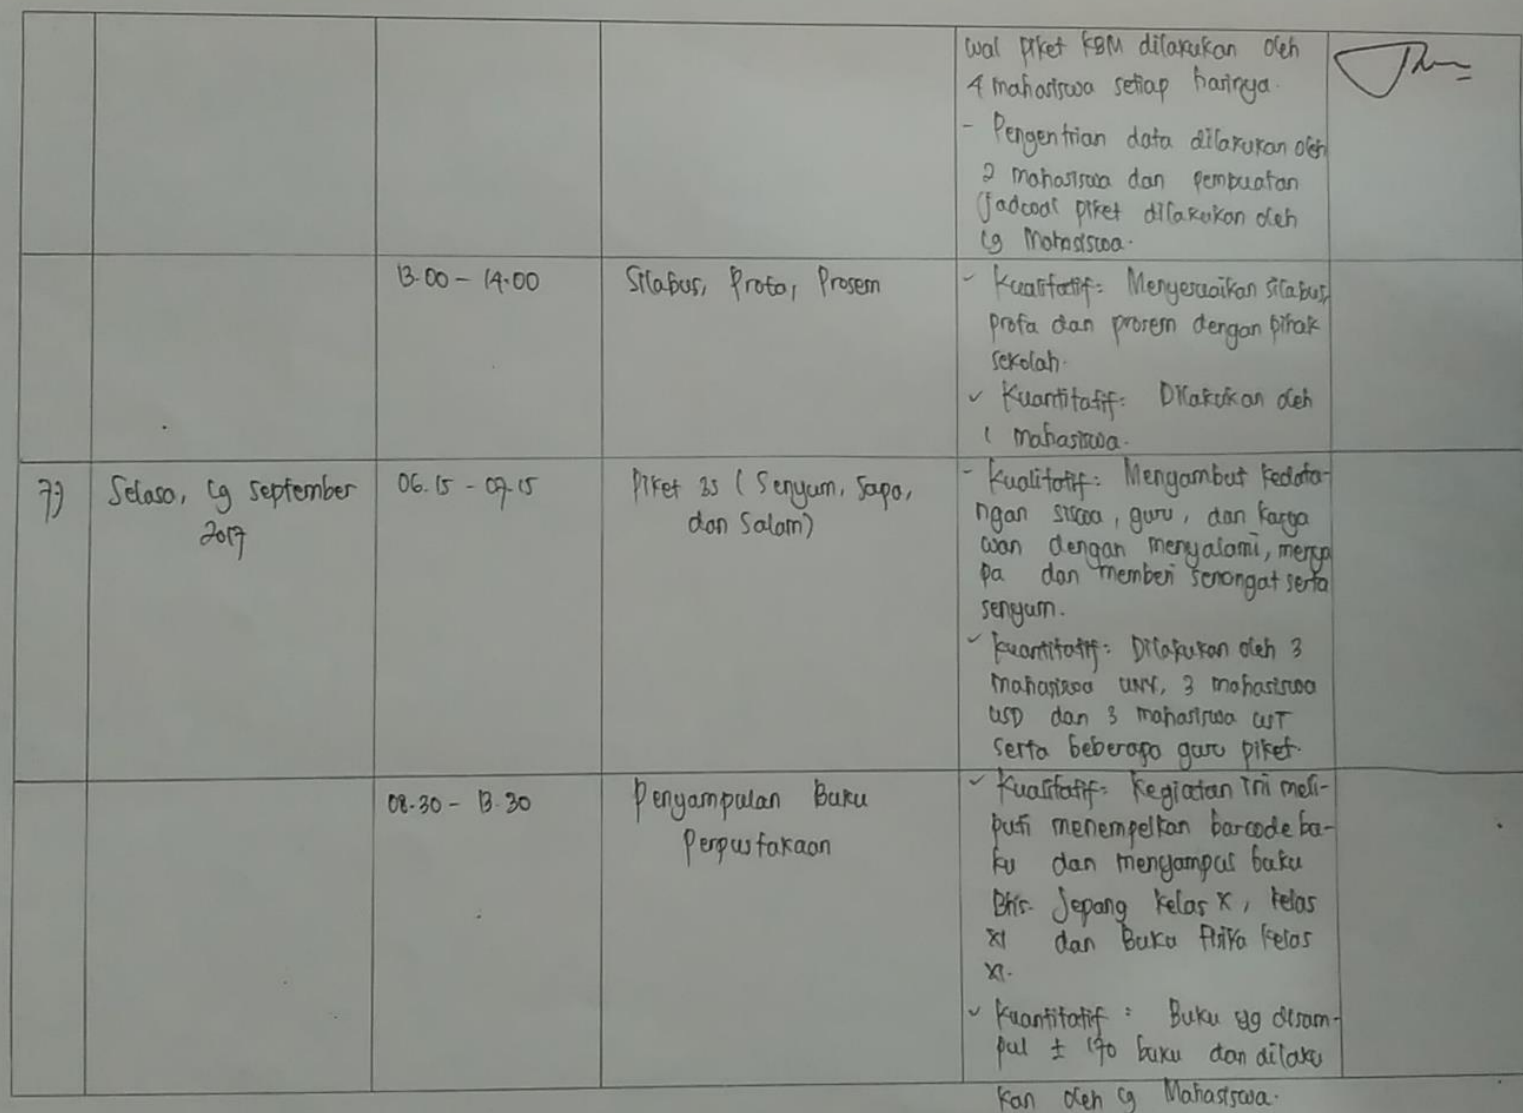 wal piket KBM dilakukan oleh
4 mahasiswa setiap harinya.
- Pengentrian data dilakukan oleh
2 mahasiswa dan pembuatan
jadwal piket dilakukan oleh
19 Mahasiswa.
13.00 - 14.00
Silabus, Prota, Prosem
- Kualitatif: Menyesuaikan silabus,
prota dan prosem dengan pihak
sekolah.
- Kuantitatif: Dilakukan oleh
1 mahasiswa.
7)
Selasa, 19 September
2017
06.15 - 07.15
Piket 3S (Senyum, Sapa,
dan Salam)
- Kualitatif: Mengambut kedata-
ngan siswa, guru, dan karya
wan dengan menyalami, menya
pa dan memberi semangat serta
senyum.
- Kuantitatif: Dilakukan oleh 3
mahasiswa UNY, 3 mahasiswa
USD dan 3 mahasiswa UST
serta beberapa guru piket.
08.30 - 13.30
Penyampulan Buku
Perpustakaan
- Kualitatif: Kegiatan ini meli-
puti menempelkan barcode bu-
ku dan menyampul buku
Bhs. Jepang kelas X, kelas
XI dan Buku Fisika kelas
XI.
- Kuantitatif: Buku yg disam-
pul ± 170 buku dan dilaku
kan oleh 19 Mahasiswa.